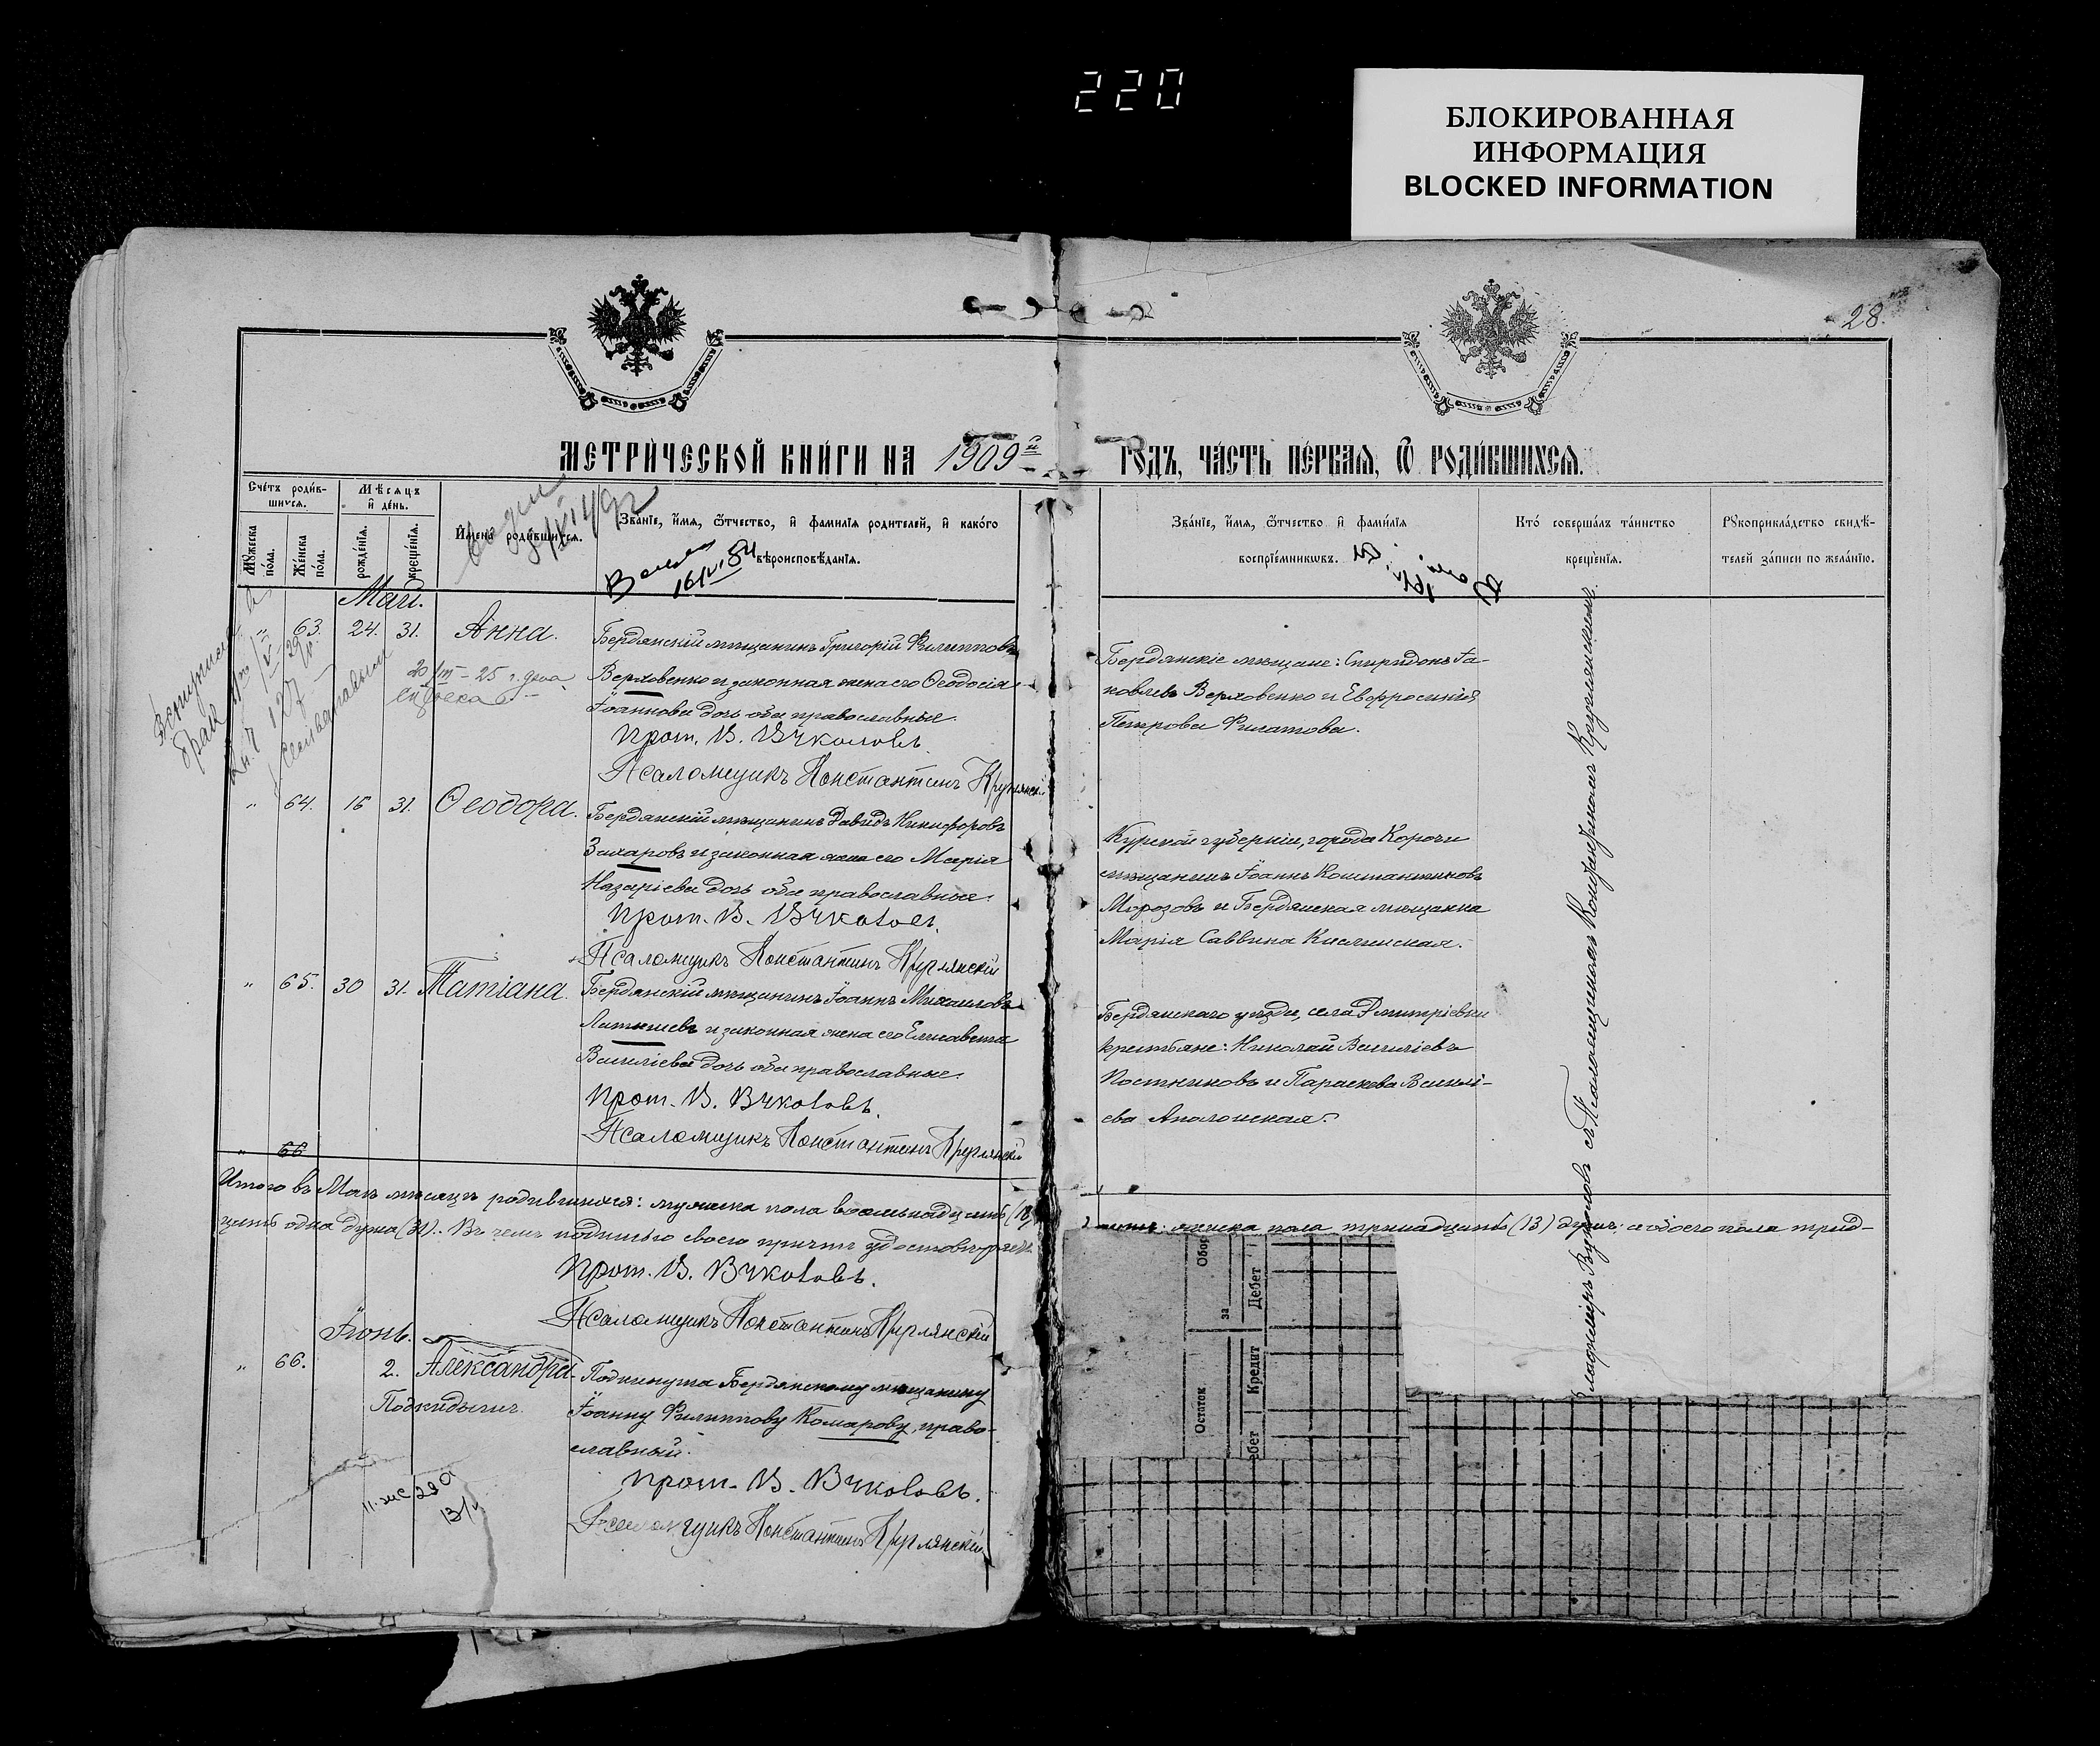 220
БЛОКИРОВАННАЯ
ИНФОРМАЦИЯ
BLOCKED INFORMATION
28.
МЕТРИ́ЧЕСКОЙ КНИ́ГИ НА 1909й ГОДЪ, ЧА́СТЬ ПЕ́РВАЯ, Ѡ РОДИ́ВШИХСЯ.
Сче́тъ роди́в-
шихся.
Мꙋжеска по́ла.
Же́нска по́ла.
Мѣ́сяцъ
и҆ де́нь.
рожде́нїя.
креще́нїя.
И҆мена̀ роди́вшихся.
Зва́нїе, и҆́мя, ѻ҆́тчество, и҆ фами́лїя роди́телей, и҆ како́гѡ
вѣроисповѣ́данїя.
Зва́нїе, и҆́мя, ѻ҆́тчество и҆ фами́лїя
воспрїе́мникѡвъ.
Кто̀ соверша́лъ та́инство
креще́нїя.
Рꙋкоприкла́дство свидѣ́-
телей за́писи по жела́нїю.
16/VI 84
Май.
" 63. 24. 31. Анна.
Бердянскій мѣщанинъ Григорій Филипповъ
Верховенко и законная жена его Ѳеодосія
Іоаннова дочь оба православные.
Прот. В. Вучколовъ.
Псаломщикъ Константинъ Круглянскій
Бердянскіе мѣщане: Спиридонъ Іа-
ковлевъ Верховенко и Евфросинія
Петрова Филатова.
" 64. 16 31. Ѳеодора.
Бердянскій мѣщанинъ Давидъ Никифоровъ
Захаровъ и законная жена его Марія
Назаріева дочь оба православные.
Прот. В. Вучколовъ.
Псаломщикъ Константинъ Круглянскій
Курской губерніи, города Корочи
мѣщанинъ Іоаннъ Константиновъ
Морозовъ и Бердянская мѣщанка
Марія Саввина
" 65. 30 31. Татіана.
Бердянскій мѣщанинъ Іоаннъ Михаиловъ
Латышевъ и законная жена его Елисавета
Василіева дочь оба православные.
Прот. В. Вучколовъ.
Псаломщикъ Константинъ Круглянскій
Бердянскаго уѣзда, села Дмитріевки
крестьяне: Николай Василіевъ
Постниковъ и Параскева Василі-
ева
" 66
Итого въ Маѣ мѣсяцѣ родившихся: мужеска пола восемьнадцать (18)
женска пола тринадцать (13) душъ; а обоего пола трид-
цать одна душа (31). Въ чемъ подписью своею причтъ удостовѣряетъ.
Прот. В. Вучколовъ.
Псаломщикъ Константинъ Круглянскій
Іюнь.
" 66. 2. Александра
Подкидышъ.
Подкинута Бердянскому мѣщанину
Іоанну Филиппову Комарову, право-
славный.
Прот. В. Вучколовъ.
Псаломщикъ Константинъ Круглянскій
съ Псаломщикомъ Константиномъ Круглянскимъ.
за
Дебет
Остаток
Кредит